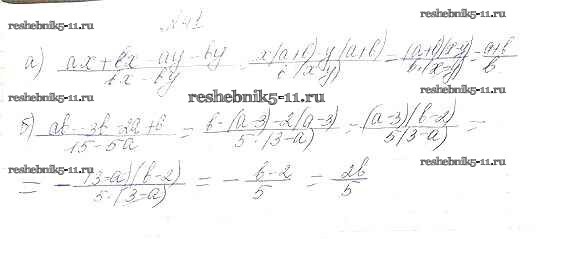 №41
reshebnik5-11.ru reshebnik5-11.ru
а) (ax + bx - ay - by)/(bx - by) = (x(a+b) - y(a+b))/(b(x-y)) = ((a+b)(x-y))/(b·(x-y)) = (a+b)/b
reshebnik5-11.ru reshebnik5-11.ru reshebnik5-11.ru
б) (ab - 3b - 2a + b)/(15 - 5a) = (b·(a-3) - 2(a-3))/(5·(3-a)) = ((a-3)(b-2))/(5(3-a)) =
reshebnik5-11.ru reshebnik5-11.ru
= -((3-a)(b-2))/(5·(3-a)) = -(b-2)/5 = (2b)/5